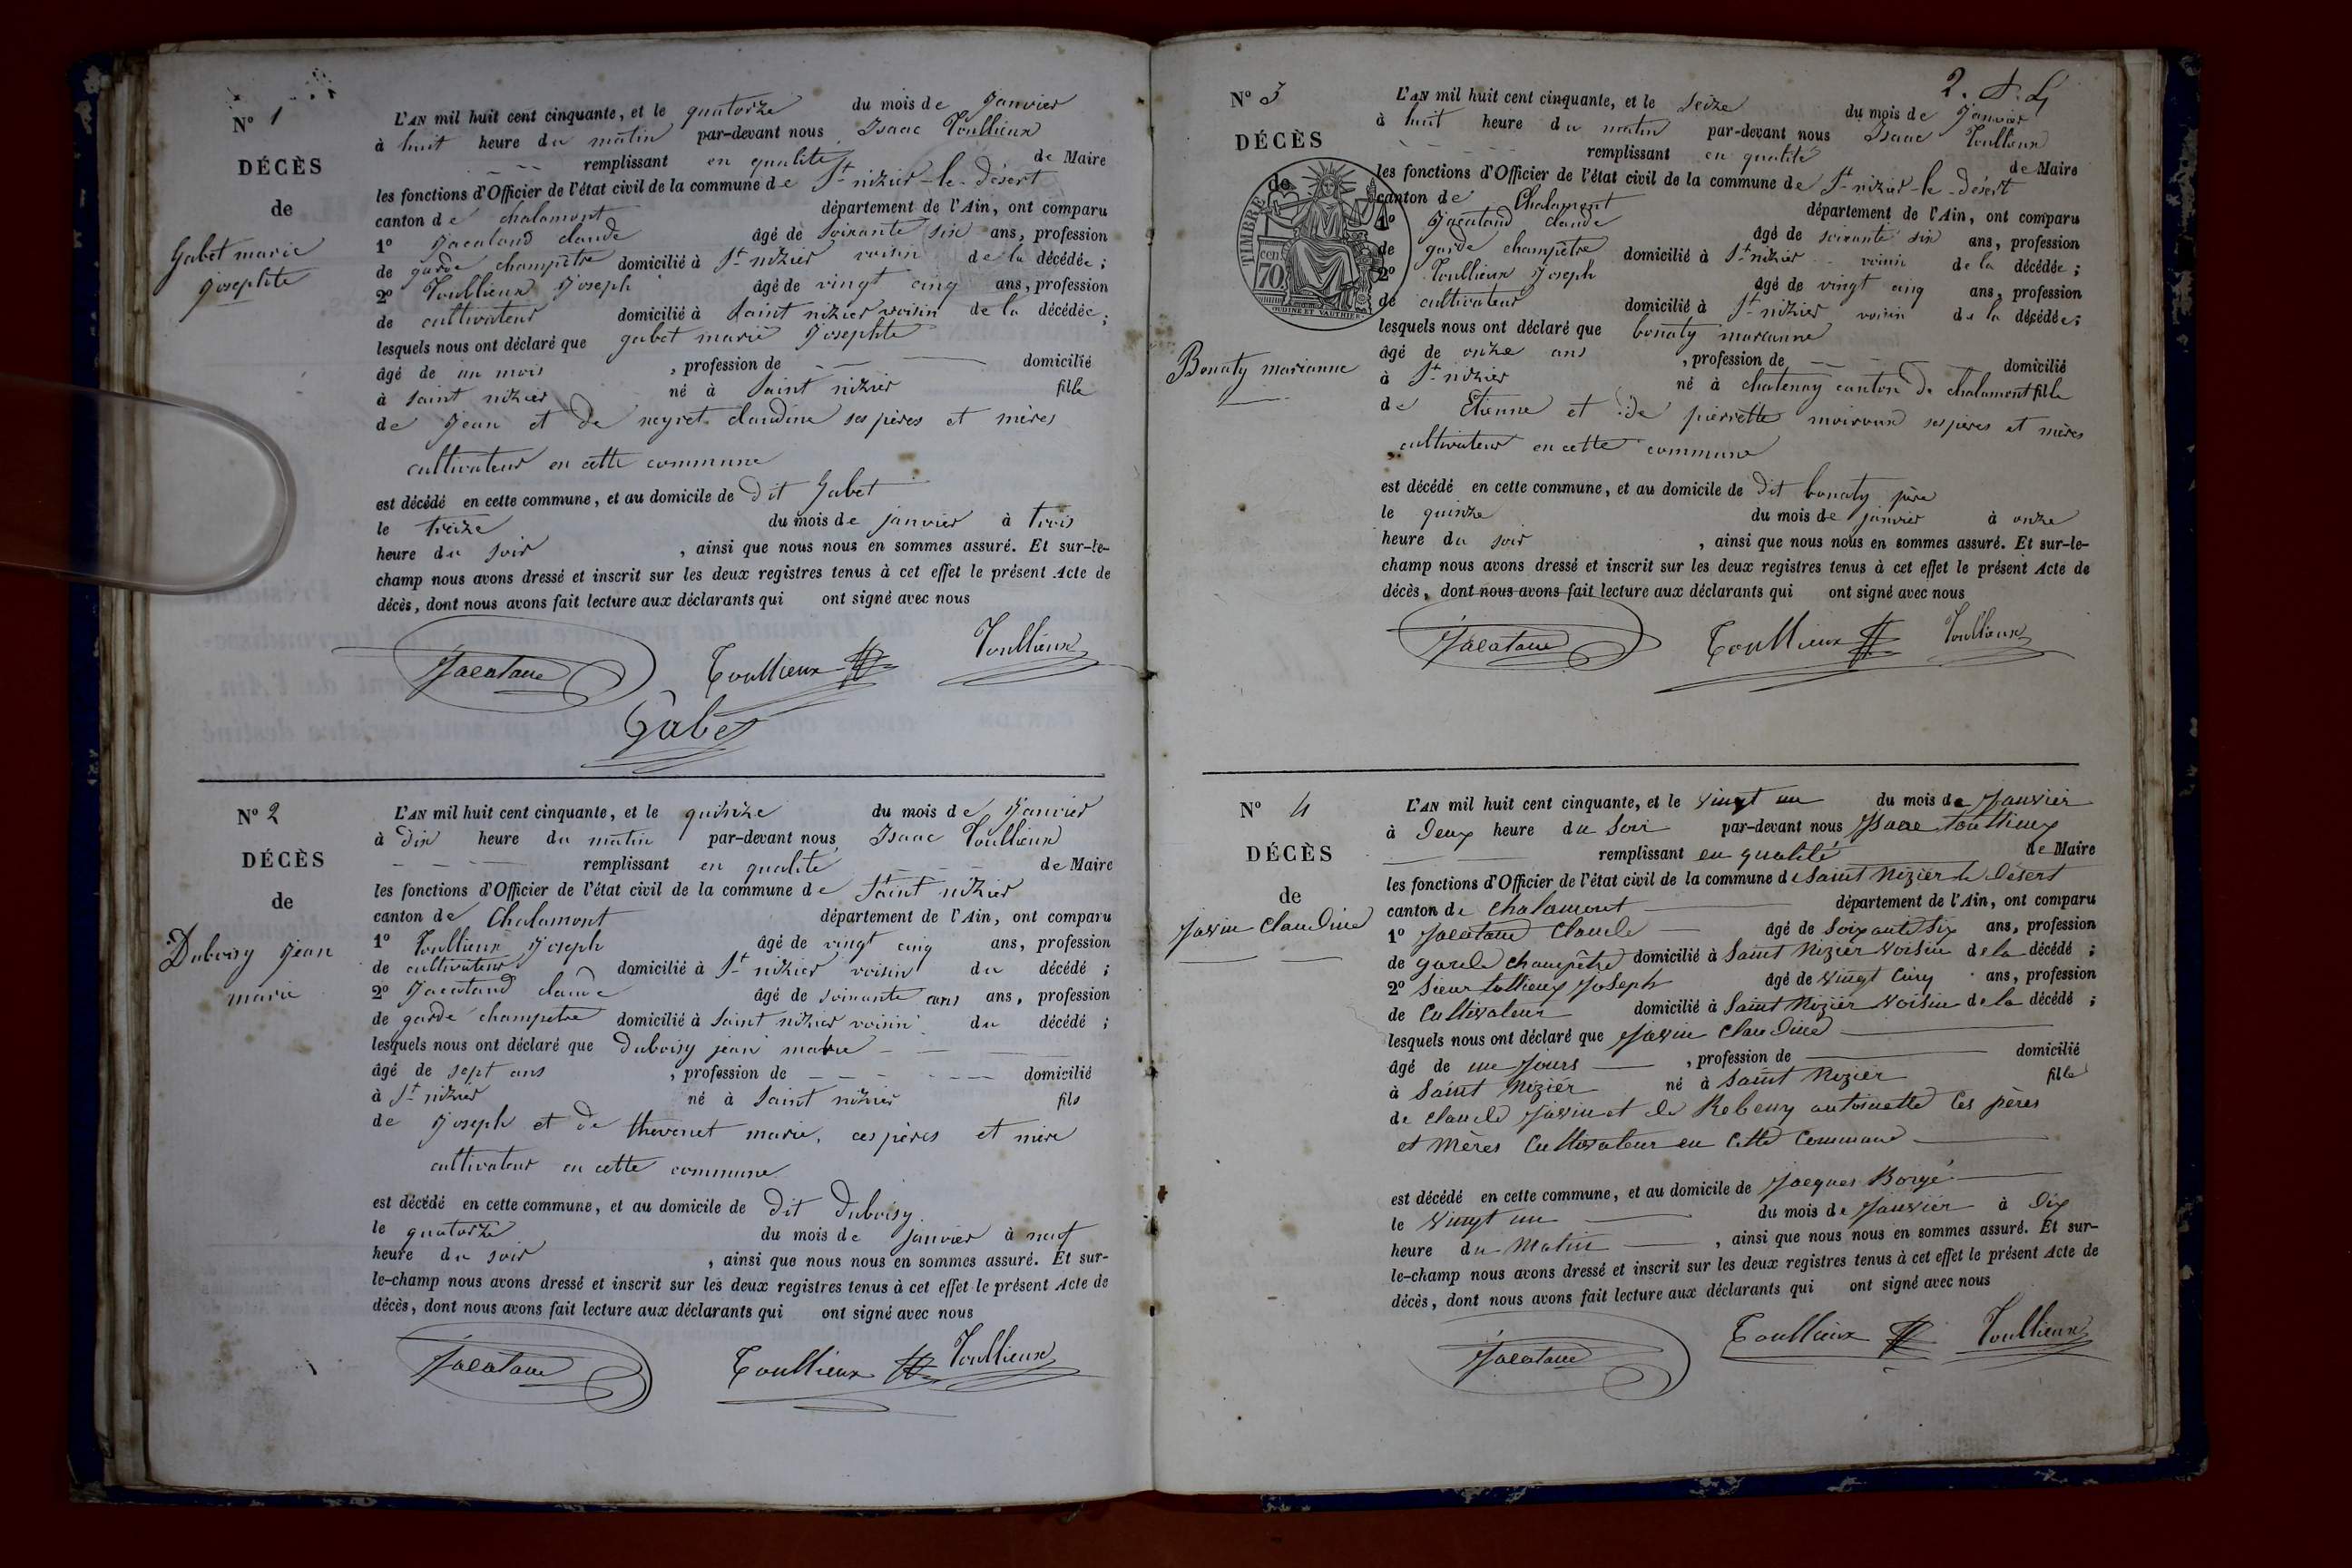 N° 1
DÉCÈS
de
Gabet marie
josephte
L'AN mil huit cent cinquante, et le quatorze du mois de Janvier
à huit heure du matin par-devant nous Isaac Toullieux
remplissant en qualité de Maire
les fonctions d'Officier de l'état civil de la commune de St nizier-le-désert
canton de chalamont département de l'Ain, ont comparu
1° Jacatand claude âgé de soixante six ans, profession
de garde champêtre domicilié à St nizier voisin de la décédée;
2° Toullieux Joseph âgé de vingt cinq ans, profession
de cultivateur domicilié à Saint nizier voisin de la décédée;
lesquels nous ont déclaré que gabet marie Josephte
âgé de un mois , profession de domicilié
à saint nizier né à Saint nizier fille
de Jean et de neyret claudine ses pères et mères
cultivateur en cette commune
est décédé en cette commune, et au domicile de dit Gabet
le treize du mois de janvier à trois
heure du soir , ainsi que nous nous en sommes assuré. Et sur-le-
champ nous avons dressé et inscrit sur les deux registres tenus à cet effet le présent Acte de
décès, dont nous avons fait lecture aux déclarants qui ont signé avec nous
Jacatand Toullieux Toullieux
Gabet
N° 2
DÉCÈS
de
Duboisy jean
marie
L'AN mil huit cent cinquante, et le quinze du mois de Janvier
à dix heure du matin par-devant nous Isaac Toullieux
remplissant en qualité de Maire
les fonctions d'Officier de l'état civil de la commune de Saint nizier
canton de Chalamont département de l'Ain, ont comparu
1° Toullieux Joseph âgé de vingt cinq ans, profession
de cultivateur domicilié à St nizier voisin du décédé ;
2° Jacatand claude âgé de soixante ans, profession
de garde champetre domicilié à Saint nizier voisin du décédé ;
lesquels nous ont déclaré que Duboisy jean marie
âgé de sept ans , profession de domicilié
à St nizier né à Saint nizier fils
de Joseph et de thevenet marie, ces pères et mère
cultivateur en cette commune
est décédé en cette commune, et au domicile de dit Duboisy
le quatorze du mois de janvier à neuf
heure du soir , ainsi que nous nous en sommes assuré. Et sur-
le-champ nous avons dressé et inscrit sur les deux registres tenus à cet effet le présent Acte de
décès, dont nous avons fait lecture aux déclarants qui ont signé avec nous
Jacatand Toullieux Toullieux
2.
N° 3
DÉCÈS
de
TIMBRE
70 cen
OUDINÉ ET VAUTHIER
Bonaty marianne
L'AN mil huit cent cinquante, et le seize du mois de Janvier
à huit heure du matin par-devant nous Isaac Toullieux
remplissant en qualité de Maire
les fonctions d'Officier de l'état civil de la commune de St nizier-le-désert
canton de Chalamont département de l'Ain, ont comparu
1° Jacatand claude âgé de soixante six ans, profession
de garde champêtre domicilié à St nizier voisin de la décédée;
2° Toullieux Joseph âgé de vingt cinq ans, profession
de cultivateur domicilié à St nizier voisin de la décédée;
lesquels nous ont déclaré que bonaty marianne
âgé de onze ans , profession de domicilié
à St nizier né à chatenay canton de chalamont fille
de Etienne et de pierrette moiroux ses pères et mères
cultivateur en cette commune
est décédé en cette commune, et au domicile de dit bonaty père
le quinze du mois de janvier à onze
heure du soir , ainsi que nous nous en sommes assuré. Et sur-le-
champ nous avons dressé et inscrit sur les deux registres tenus à cet effet le présent Acte de
décès, dont nous avons fait lecture aux déclarants qui ont signé avec nous
Jacatand Toullieux Toullieux
N° 4
DÉCÈS
de
Javin Claudine
L'AN mil huit cent cinquante, et le vingt un du mois de Janvier
à deux heure du Soir par-devant nous Isaac toullieux
remplissant en qualité de Maire
les fonctions d'Officier de l'état civil de la commune de Saint Nizier le Désert
canton de chalamont département de l'Ain, ont comparu
1° Jacatand Claude âgé de Soixante Six ans, profession
de garde champêtre domicilié à Saint Nizier Voisin de la décédé ;
2° Sieur tollieux Joseph âgé de Vingt Cinq ans, profession
de Cultivateur domicilié à Saint Nizier Voisin de la décédé ;
lesquels nous ont déclaré que Javin Claudine
âgé de un Jours , profession de domicilié
à Saint Nizier né à Saint Nizier fille
de claude Javin et de Rebeuy antoinette Ces pères
et Mères Cultivateur en Cette Commune
est décédé en cette commune, et au domicile de Jacques Borgé
le Vingt un du mois de Janvier à Dix
heure du Matin , ainsi que nous nous en sommes assuré. Et sur-
le-champ nous avons dressé et inscrit sur les deux registres tenus à cet effet le présent Acte de
décès, dont nous avons fait lecture aux déclarants qui ont signé avec nous
Jacatand Toullieux Toullieux